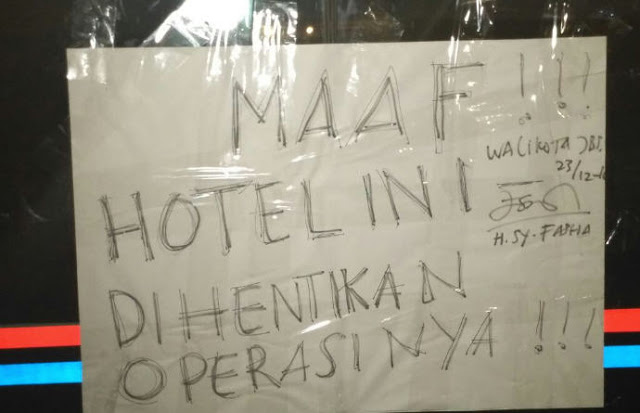 MAAF !!!
WALIKOTA JBI.
23/12-16
HOTEL INI
H. SY. FASHA
DIHENTIKAN
OPERASINYA !!!